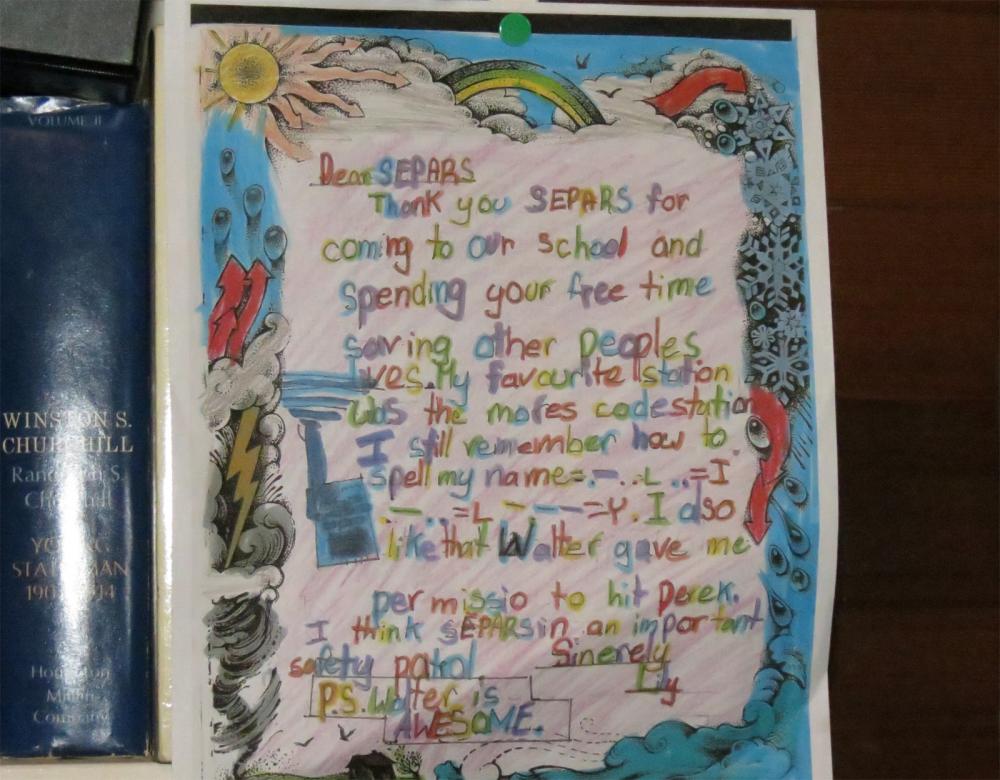 VOLUME II
WINSTON S.
CHURCHILL
Randolph S.
Churchill
YOUNG
STATESMAN
Houghton
Mifflin
Company
Dear SEPARS
Thank you SEPARS for
coming to our school and
spending your free time
saving other peoples
lives. My favourite station
was the mores codestation
I still remember how to
spell my name=.-..L ..=I
.-..=L -.--=Y. I also
like that Walter gave me
permissio to hit Derek.
I think SEPARSin an important
safety patrol Sinerely
Lily
P.S. Walter is
AWESOME.